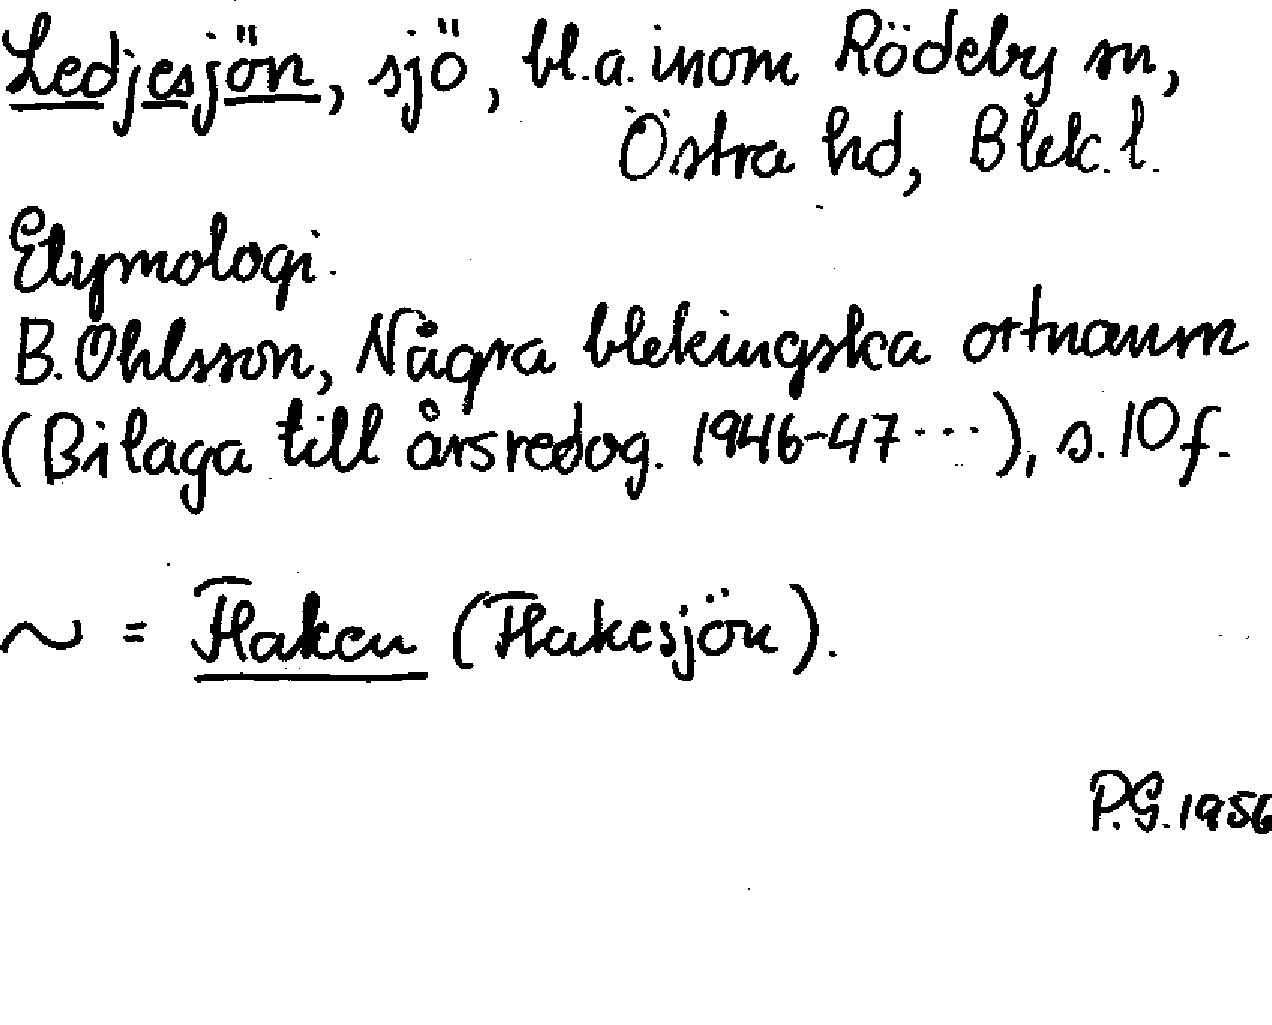 Ledjesjön, sjö, bl.a. inom Rödeby sn,
Östra hd, Blek. l.
Etymologi.
B. Ohlsson, Några blekingska ortnamn
(Bilaga till årsredog. 1946-47 ...), s. 10 f.
~ = Flaken (Flakesjön).
P.G. 1956